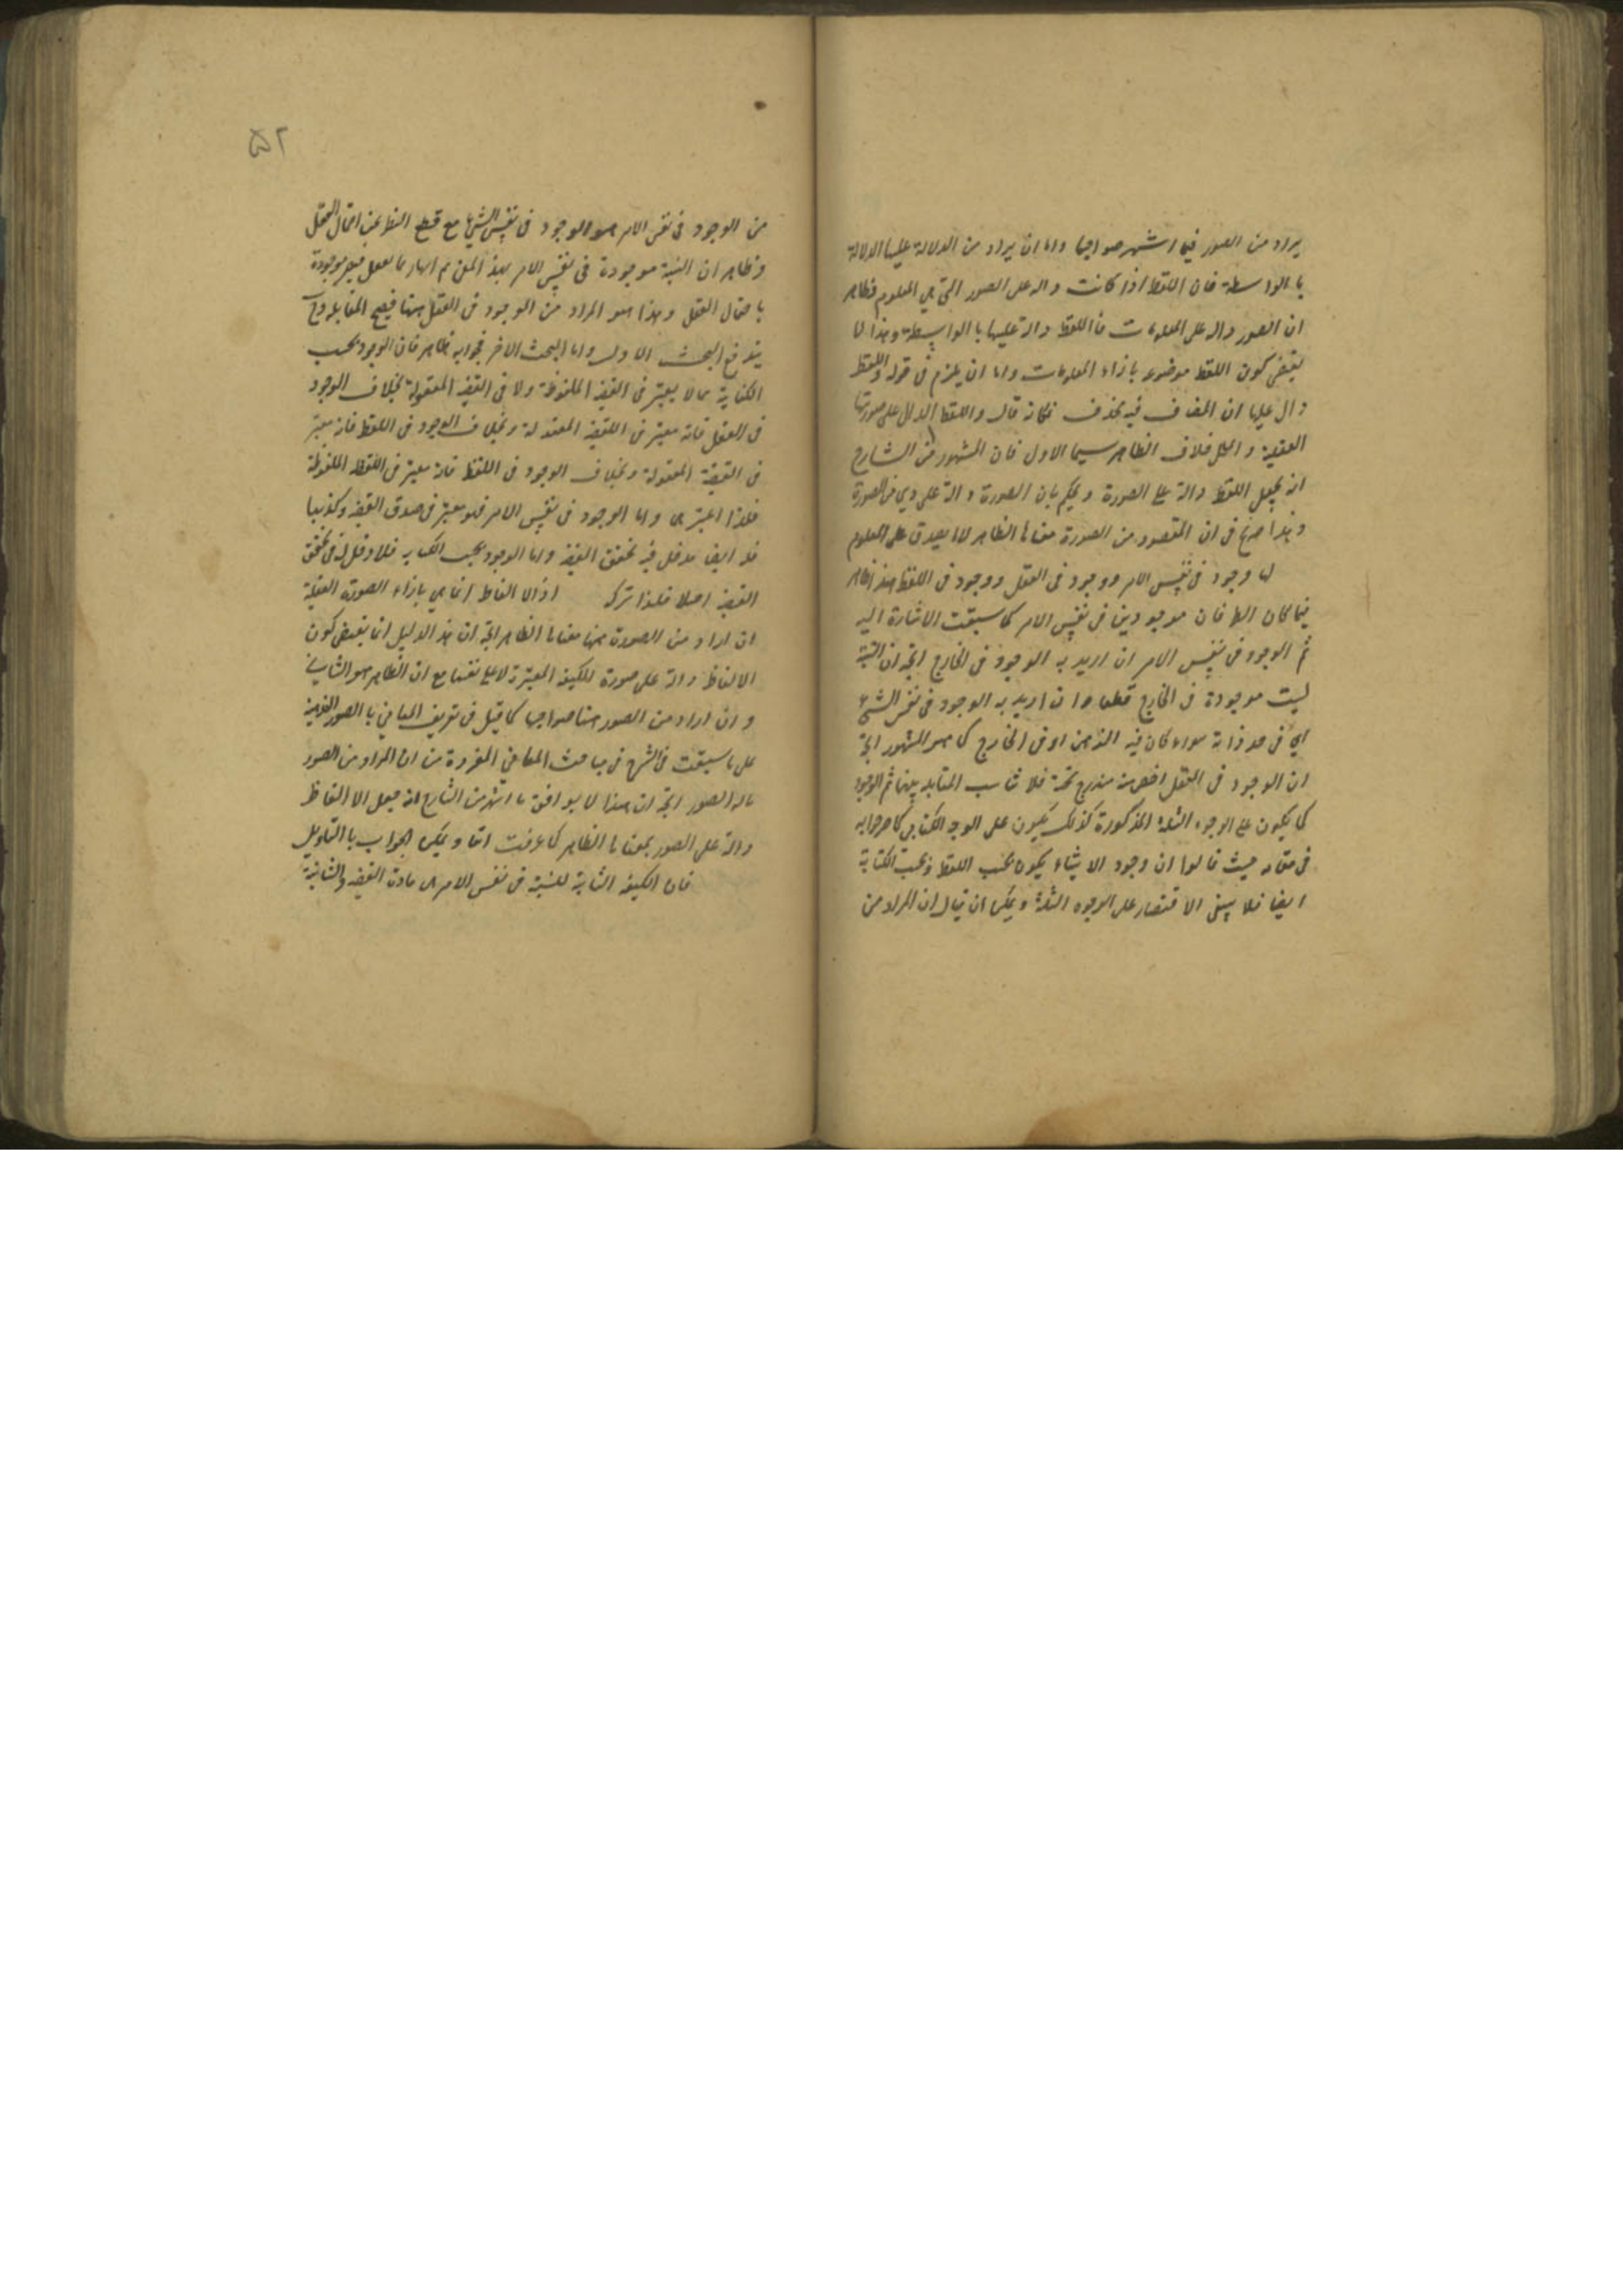 يراد من الصور فيما اشتهر صواحبها واما ان يراد من الدلالة عليها الدلالة
بالواسطة فان اللفظ اذا كانت دالة على الصور التي هي المعلوم فظاهر
ان الصور دالة على المعلومات فاللفظ دالة عليها بالواسطة وهذا لا
يقتضى كون اللفظ موضوع بازاء المعلومات واما ان يلزم في قوله واللفظ
دال عليها ان المضاف فيه محذوف فكانه قال واللفظ الدال على صورتها
العقلية والكل خلاف الظاهر سيما الاول فان المشهور من الشارح
انه يجعل اللفظ دالة على الصورة ويحكم بان الصورة دالة على ذي الصورة
وهذا صريح في ان المقصود من الصورة معناها الظاهر لا ما يصدق على المعلوم
لها وجود في نفس الامر ووجود في العقل ووجود في اللفظ هذا ظاهر
فيما كان الطرفان موجودين في نفس الامر كما سبقت الاشارة اليه
ثم الوجود في نفس الامر ان اريد به الوجود في الخارج اتجه ان النسبة
ليست موجودة في الخارج قطعا وان اريد به الوجود في نفس الشئ
اي في حد ذاته سواء كان فيه الذهن او في الخارج كما هو المشهور اتجه
ان الوجود في العقل اخص منه مندرج تحته فلا تناسب المقابلة بينهما ثم الوجود
كما يكون على الوجوه الثلثة المذكورة كذلك يكون على الوجه الكتابي كما صرحوا به
في مقامه حيث قالوا ان وجود الاشياء يكون بحسب اللفظ وبحسب الكتابة
ايضا فلا ينبغي الاقتصار على الوجوه الثلثة ويمكن ان يقال ان المراد من
۵۲
من الوجود في نفس الامر هو الوجود في نفس الشئ مع قطع النظر عن اعتمال العقل
وظاهر ان النسبة موجودة في نفس الامر بهذا المعنى ثم انها
باعتمال العقل وهذا هو المراد من الوجود في العقل ههنا فيصح المقابلة وح
يندفع البحث الاول واما البحث الاخر فجوابه ظاهر فان الوجود بحسب
الكتابة مما لا يعتبر في القضية الملفوظة ولا في القضية المعقولة بخلاف الوجود
في العقل فانه معتبر في القضية المعقولة وبخلاف الوجود في اللفظ فانه معتبر
في القضية المعقولة وبخلاف الوجود في اللفظ فانه معتبر في اللفظ الملفوظة
فلذا اعتبرها واما الوجود في نفس الامر فهو معتبر في صدق القضية وكذبها
فله ايضا مدخل في تحقق القضية واما الوجود بحسب الكتابة فلا دخل له في تحقق
القضية اصلا فلذا تركه اذ الالفاظ انما هي بازاء الصورة العقلية
ان اراد من الصورة ههنا معناها الظاهر اتجه ان هذا الدليل انما يقتضى كون
الالفاظ دالة على صورة الكيفية المعتبرة لا على نفسها مع ان الظاهر هو الثاني
وان اراد من الصور ههنا صواحبها كما قيل في تعريف المعاني بالصور الذهنية
على ما سبقت في الشرح في مباحث المعاني المفردة من ان المراد من الصور
ماله الصور اتجه ان هذا لا يوافق ما اشتهر من الشارح انه جعل الالفاظ
دالة على الصور بمعناها الظاهر كما عرفت انفا ويمكن الجواب بالتاويل
فان الكيفية الثابتة للنسبة في نفس الامر هي مادة القضية والثابتة